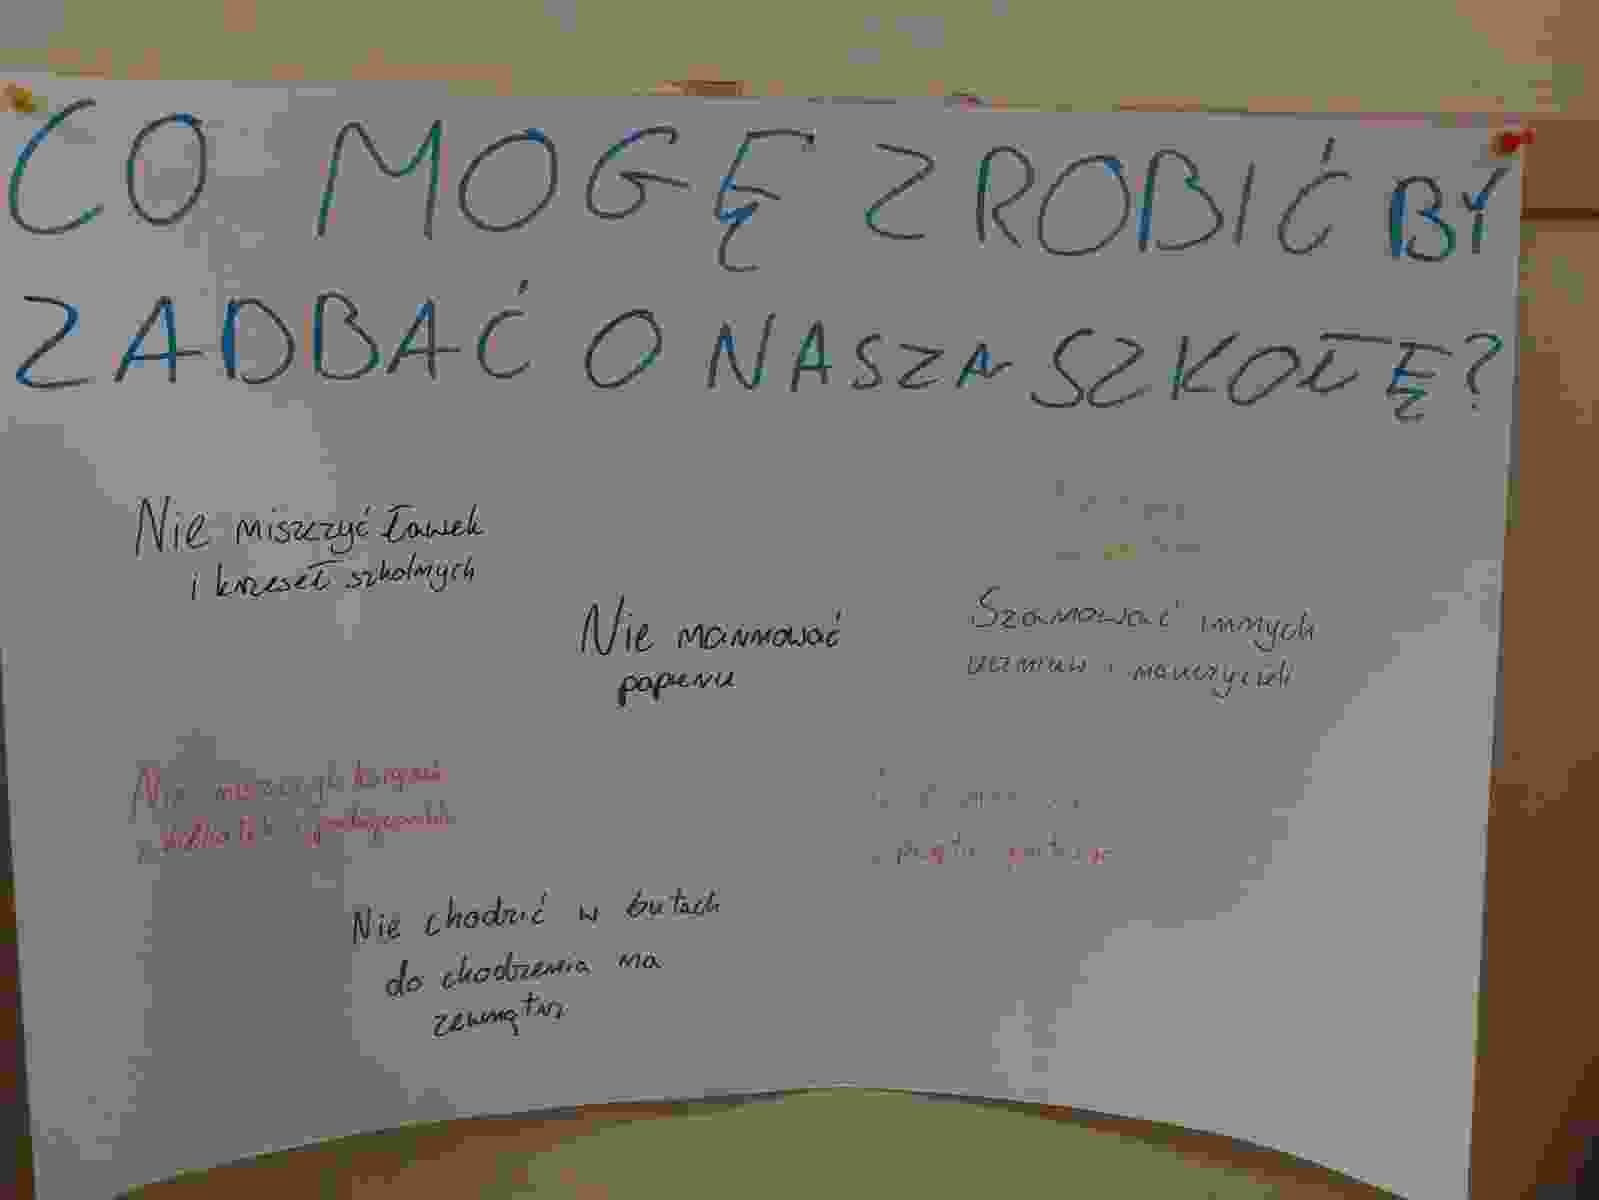 CO MOGĘ ZROBIĆ BY
ZADBAĆ O NASZĄ SZKOŁĘ?
Nie niszczyć ławek
i krzeseł szkolnych
Nie marnować
papieru
Szanować innych
uczniuw i nauczycieli
Nie niszczyć książek
i podręczników
Nie chodzić w butach
do chodzenia na
zewnątrz